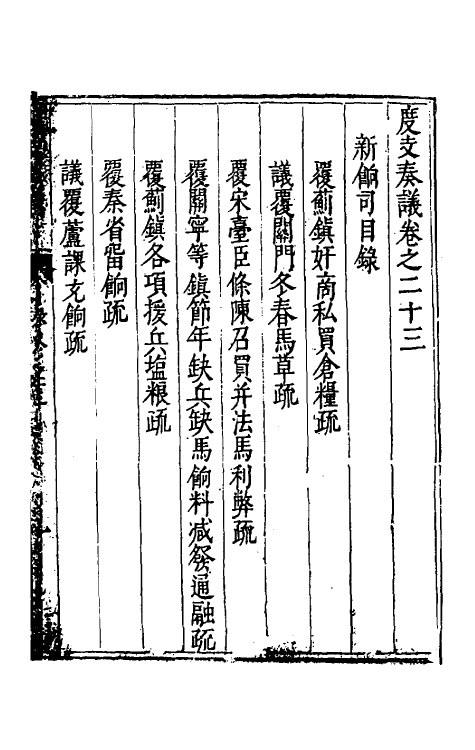 度支奏議卷之二十三
新餉司目錄
覆薊鎮奸商私買倉糧疏
議覆關門冬春馬草疏
覆宋臺臣條陳召買并法馬利弊疏
覆關寧等鎮節年缺兵缺馬餉料减發通融疏
覆薊鎮各項援兵塩粮疏
覆秦省畱餉疏
議覆蘆課充餉疏